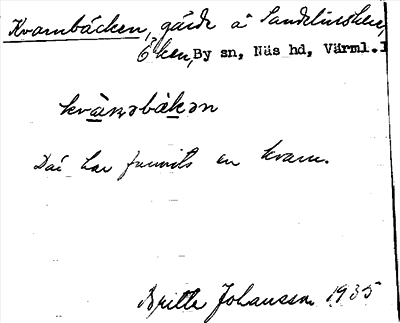 Kvarnbäcken, gärde å Sandelinsken,
Öken, By sn, Näs hd, Värml. l
kvàɳəbäkən
Där har funnits en kvarn.
Britta Johansson 1935